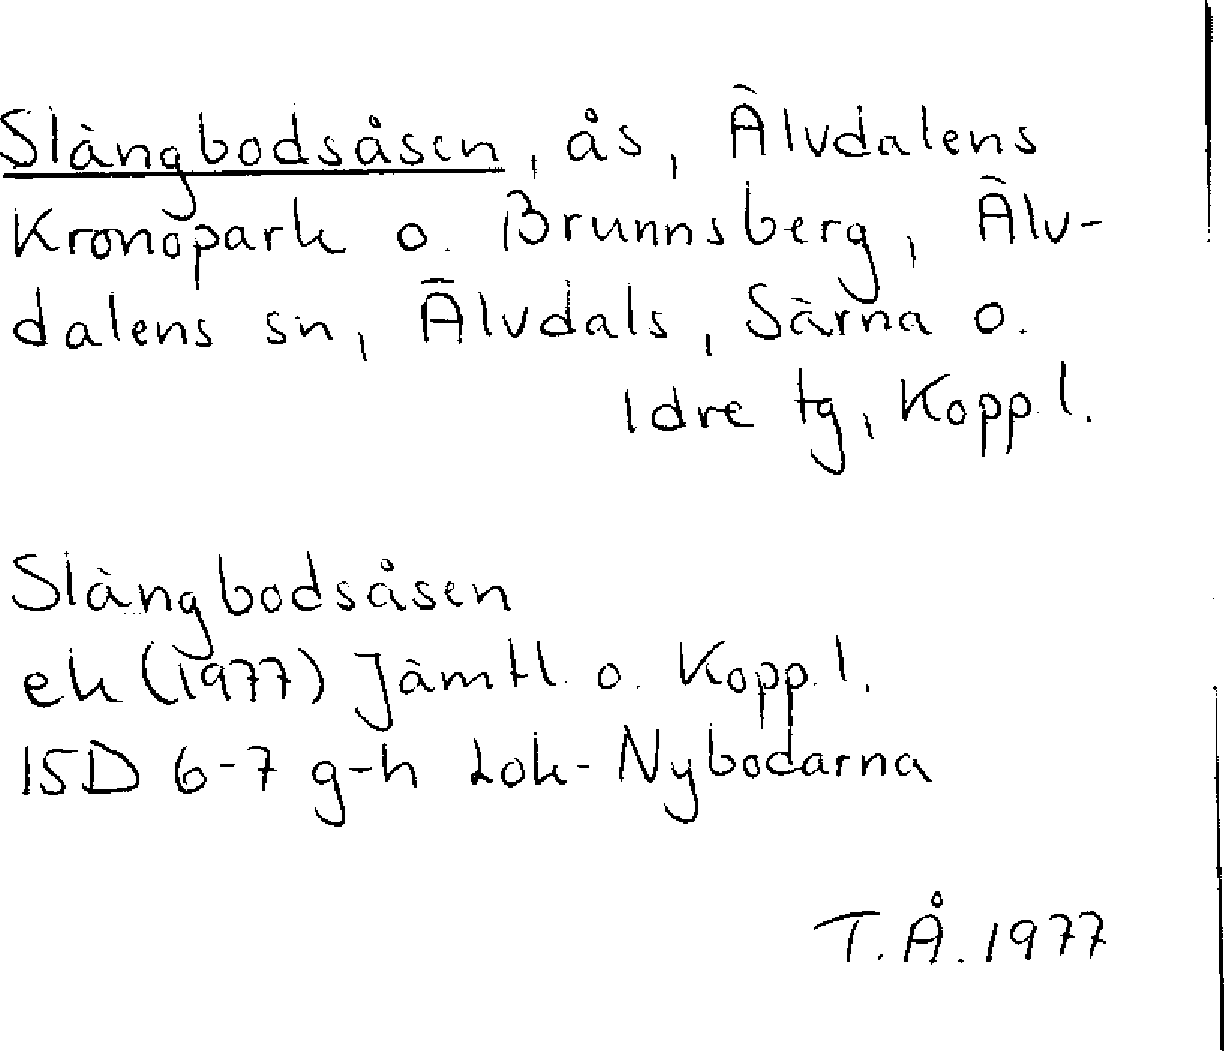 Slängbodsåsen, ås, Älvdalens
Kronopark o. Brunnsberg, Älv-
dalens sn, Älvdals, Särna o.
Idre tg, Koppl.
Slängbodsåsen
ek (1977) Jämtl. o. Koppl.
15D 6-7 g-h Lok-Nybodarna
T.Å. 1977